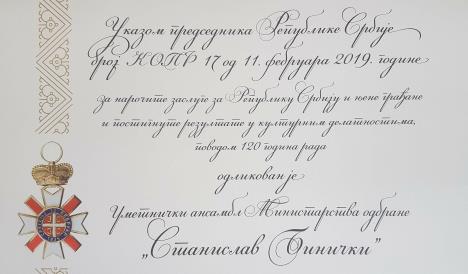 Указом председника Републике Србије
број КОПР 17 од 11. фебруара 2019. године
за нарочите заслуге за Републику Србију и њене грађане
и постигнуте резултате у културним делатностима,
поводом 120 година рада
одликован је
Уметнички ансамбл Министарства одбране
„Станислав Бинички”